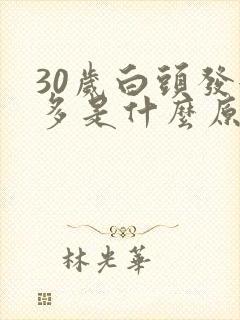 30歲白頭發
多是什麼原
林光華